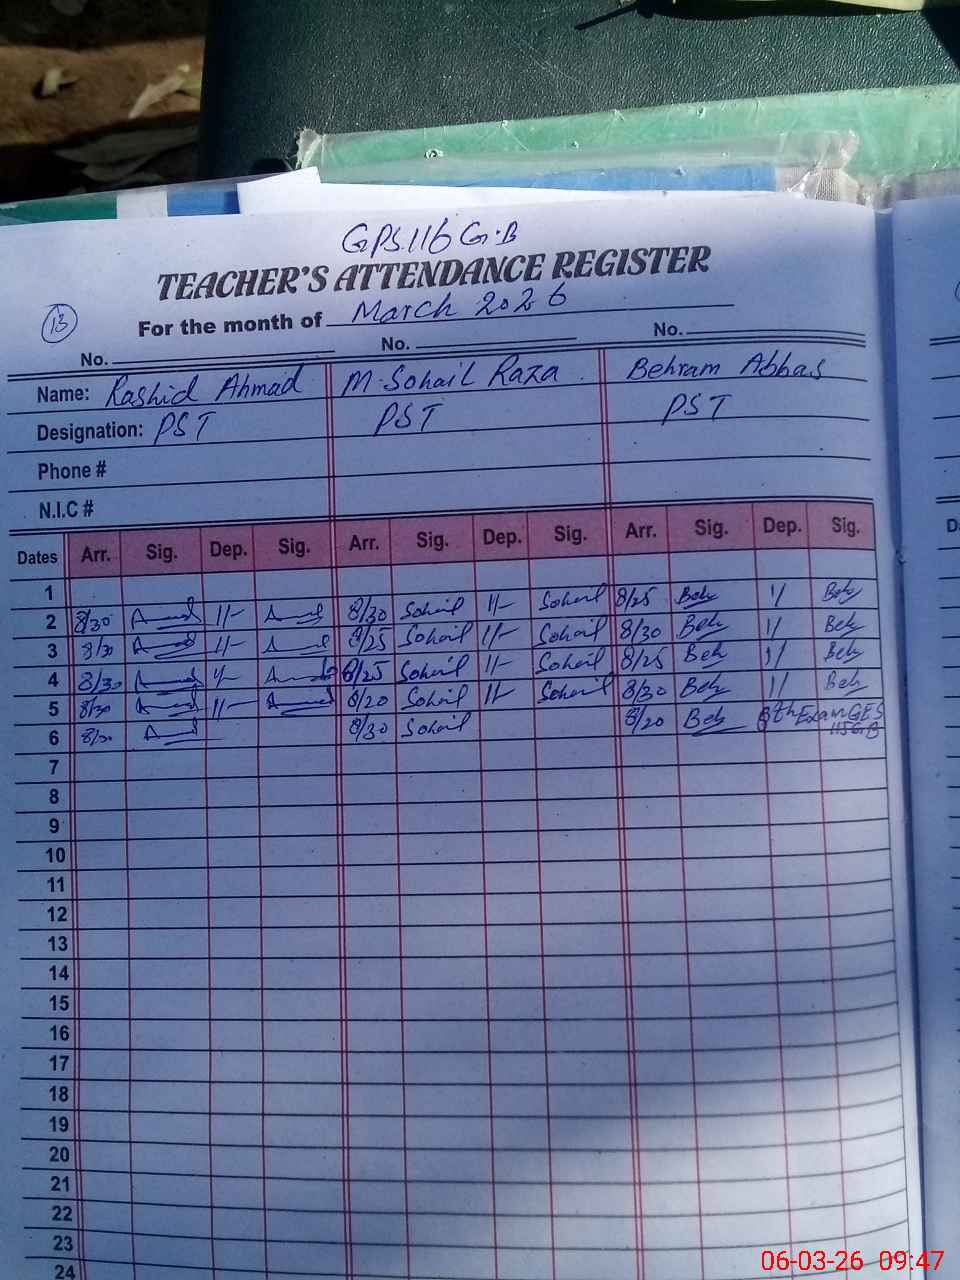 GPS.116 G.B
TEACHER'S ATTENDANCE REGISTER
13
For the month of March 2026
No. No. No.
Name: Rashid Ahmad M. Sohail Raza Behram Abbas
Designation: PST PST PST
Phone #
N.I.C #
Dates Arr. Sig. Dep. Sig. Arr. Sig. Dep. Sig. Arr. Sig. Dep. Sig.
1
2 8/30 11/- 8/30 Sohail 11/- Sohail 8/25 Beh 1/ Beh
3 8/30 11/- 8/25 Sohail 11/- Sohail 8/30 Beh 1/ Beh
4 8/30 8/25 Sohail 11/- Sohail 8/25 Beh 1/ Beh
5 8/30 11/- 8/20 Sohail 11/- Sohail 8/30 Beh 1/ Beh
6 8/30 8/30 Sohail 8/20 Beh 8th Exam GES
115 G.B
7
8
9
10
11
12
13
14
15
16
17
18
19
20
21
22
23
24
D
06-03-26 09:47